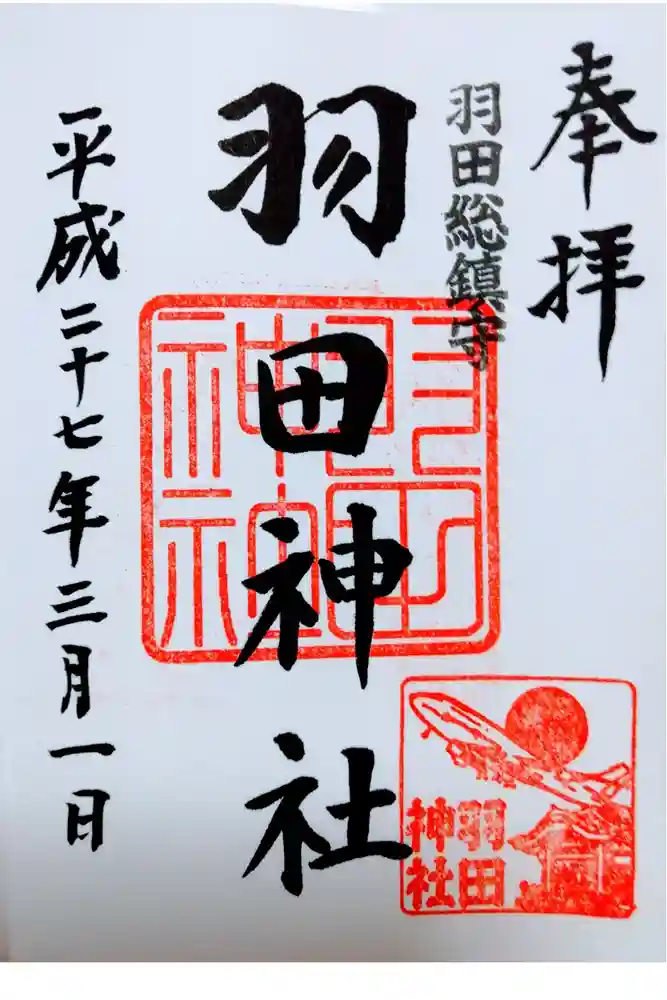 奉拝
羽田総鎮守
羽田神社
平成二十七年三月一日
羽田
神社